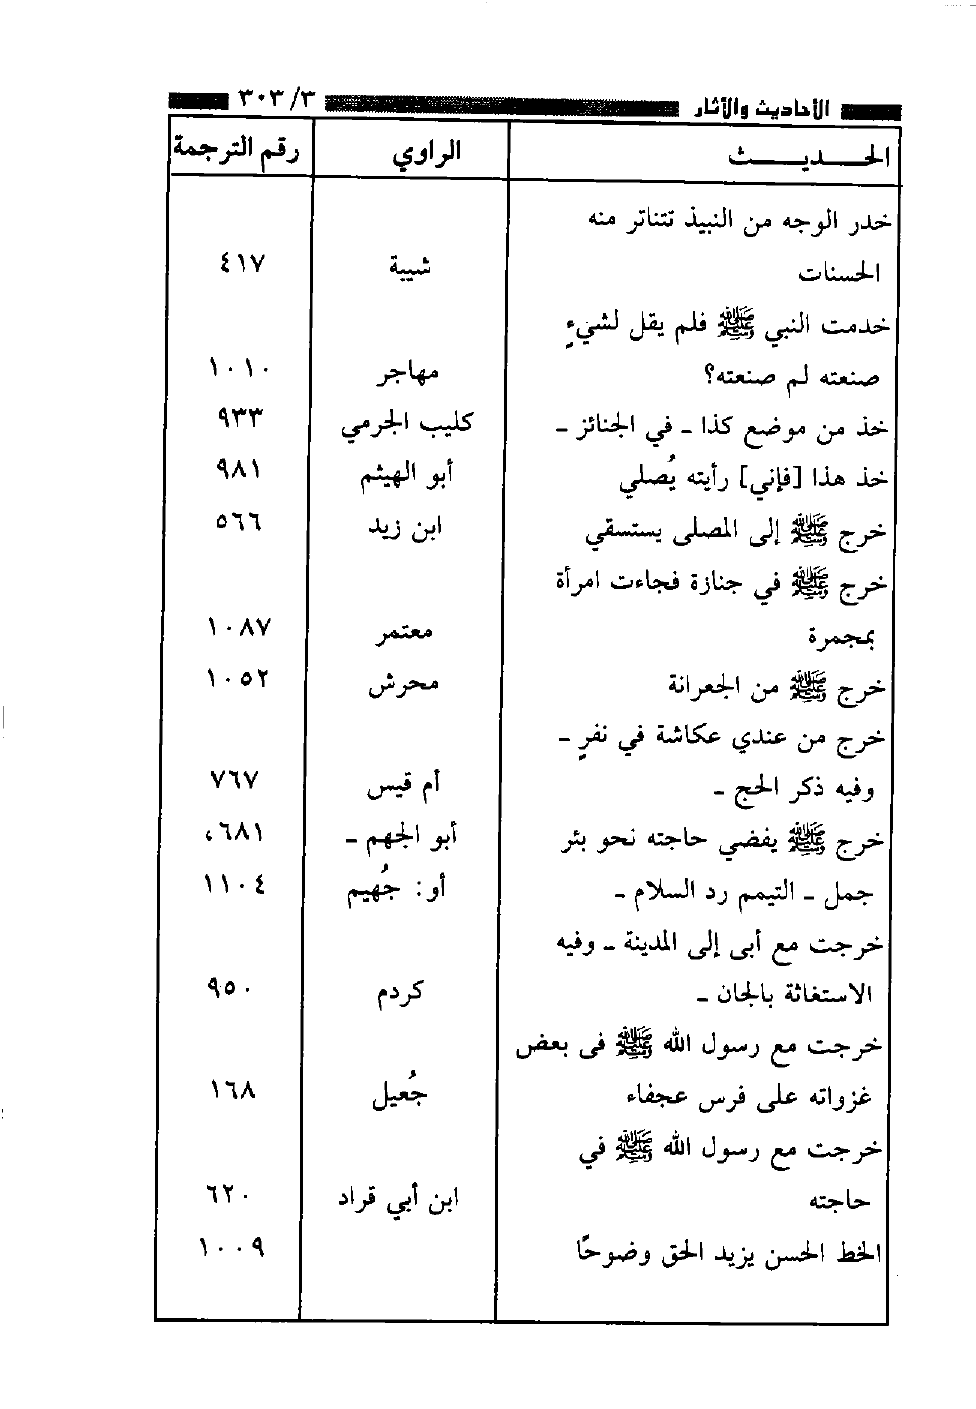 الأحاديث والآثار ٣٠٣/٣
الحـــديـــــث الراوي رقم الترجمة
خدر الوجه من النبيذ تتناثر منه
الحسنات شيبة ٤١٧
خدمت النبي ﷺ فلم يقل لشيءٍ
صنعته لم صنعته؟ مهاجر ١٠١٠
خذ من موضع كذا ـ في الجنائز ـ كليب الجرمي ٩٣٣
خذ هذا [فإني] رأيته يُصلي أبو الهيثم ٩٨١
خرج ﷺ إلى المصلى يستسقي ابن زيد ٥٦٦
خرج ﷺ في جنازة فجاءت امرأة
بمجمرة معتمر ١٠٨٧
خرج ﷺ من الجعرانة محرش ١٠٥٢
خرج من عندي عكاشة في نفرٍ ـ
وفيه ذكر الحج ـ أم قيس ٧٦٧
خرج ﷺ يفضي حاجته نحو بئر أبو الجهم ـ ٦٨١،
جمل ـ التيمم رد السلام ـ أو: جُهيم ١١٠٤
خرجت مع أبى إلى المدينة ـ وفيه
الاستغاثة بالجان ـ كردم ٩٥٠
خرجت مع رسول الله ﷺ فى بعض
غزواته على فرس عجفاء جُعيل ١٦٨
خرجت مع رسول الله ﷺ في
حاجته ابن أبي قراد ٦٢٠
الخط الحسن يزيد الحق وضوحًا ١٠٠٩